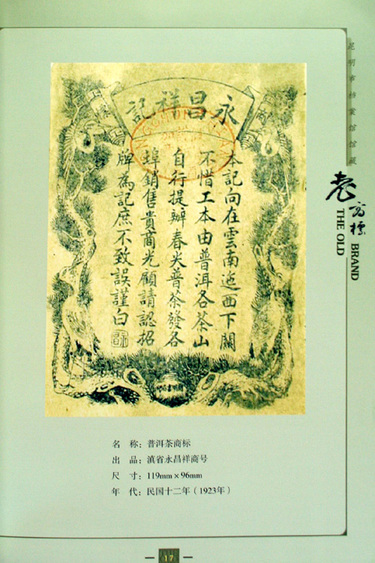 昆明市档案馆馆藏
老商标
THE OLD BRAND
永昌祥記
本記向在雲南迤西下關
不惜工本由普洱各茶山
自行提辦春尖普茶發各
埠銷售貴商光顧請認招
牌為記庶不致誤謹白
名 称：普洱茶商标
出 品：滇省永昌祥商号
尺 寸：119mm×96mm
年 代：民国十二年（1923年）
17